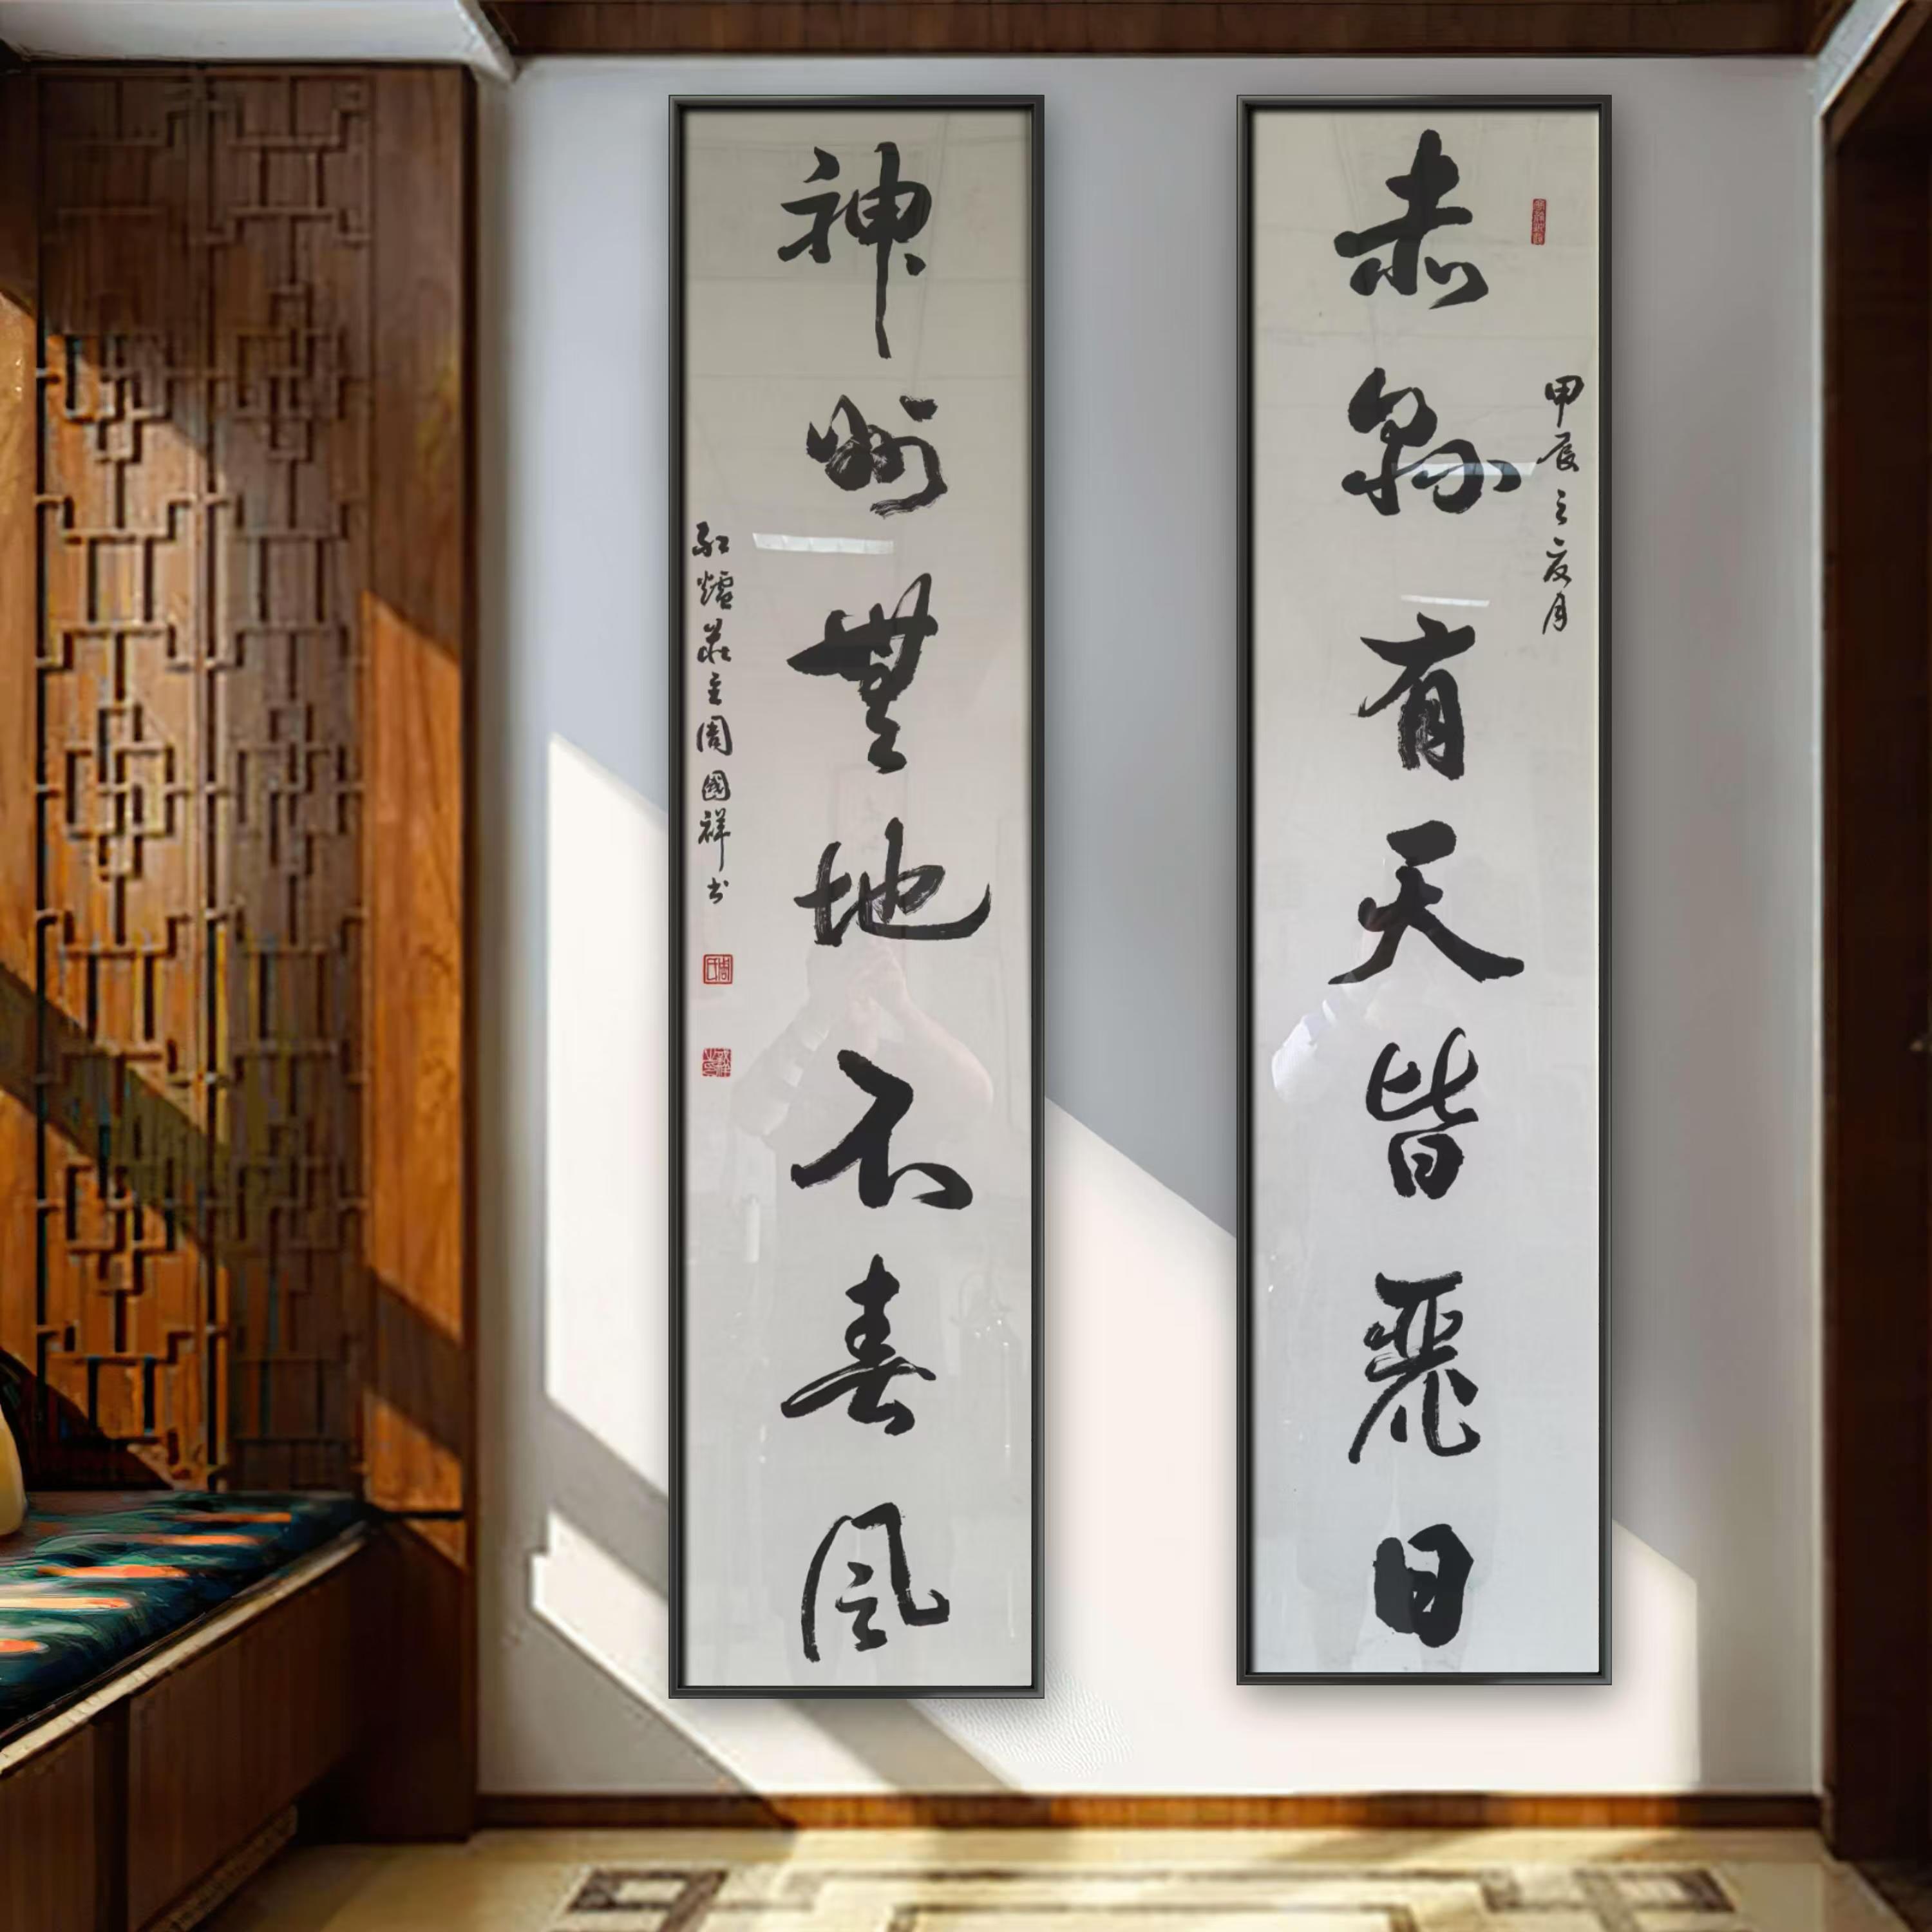 赤縣有天皆麗日
甲辰之夏月
神州無地不春風
紅爐莊主周國祥书
周氏